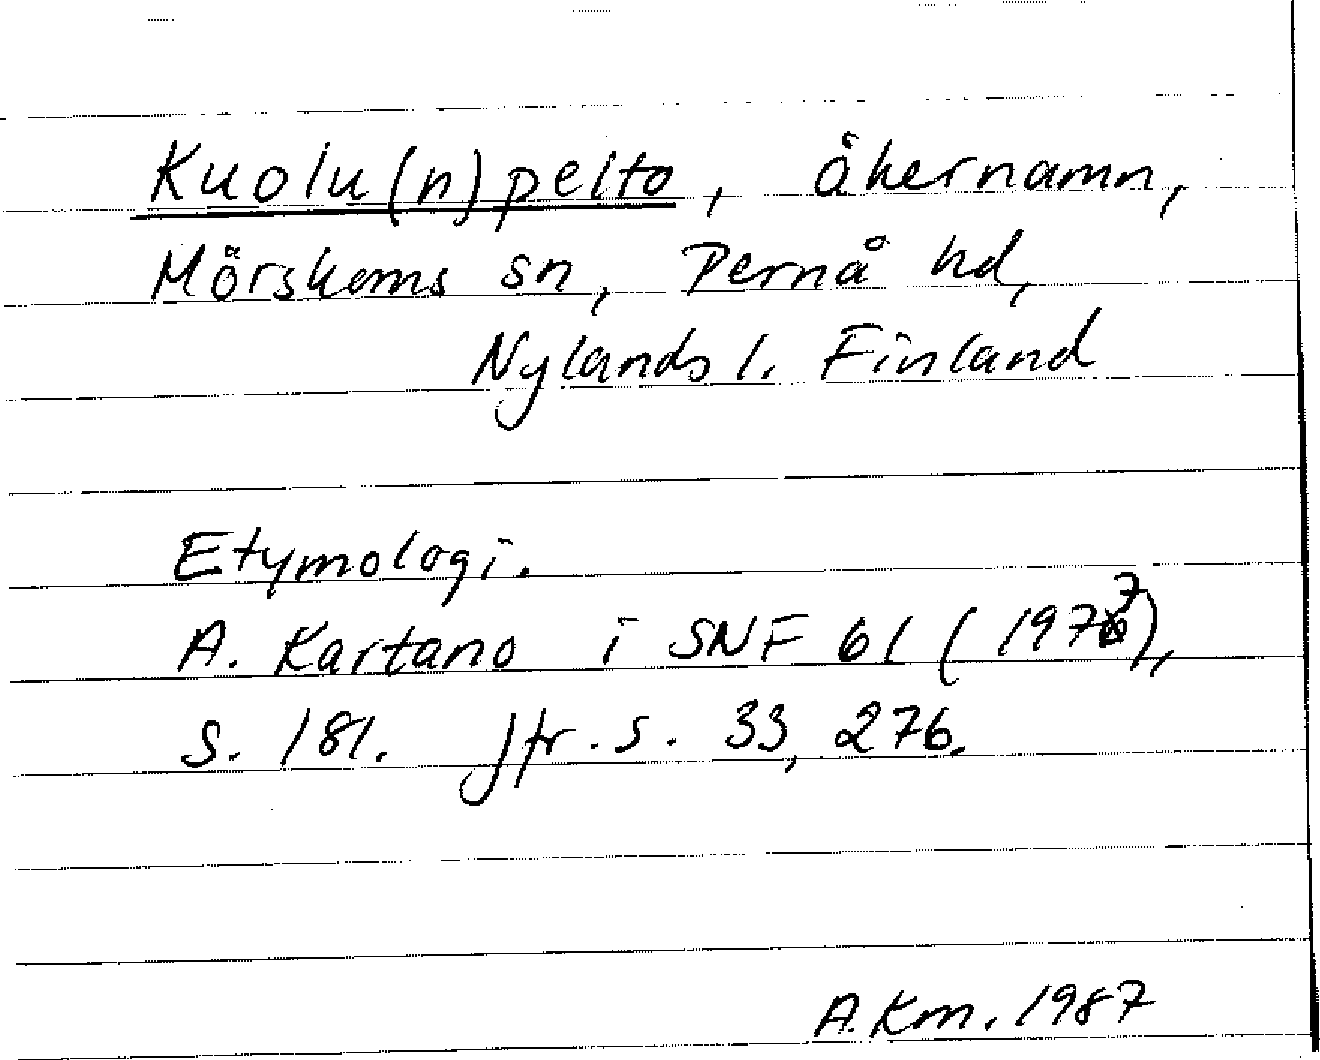 Kuolu(n)pelto, åkernamn,
Mörskoms sn, Pernå hd,
Nylands l. Finland
Etymologi.
A. Kartano i SNF 61 (1977),
s. 181. Jfr. s. 33, 276.
A.Km. 1987